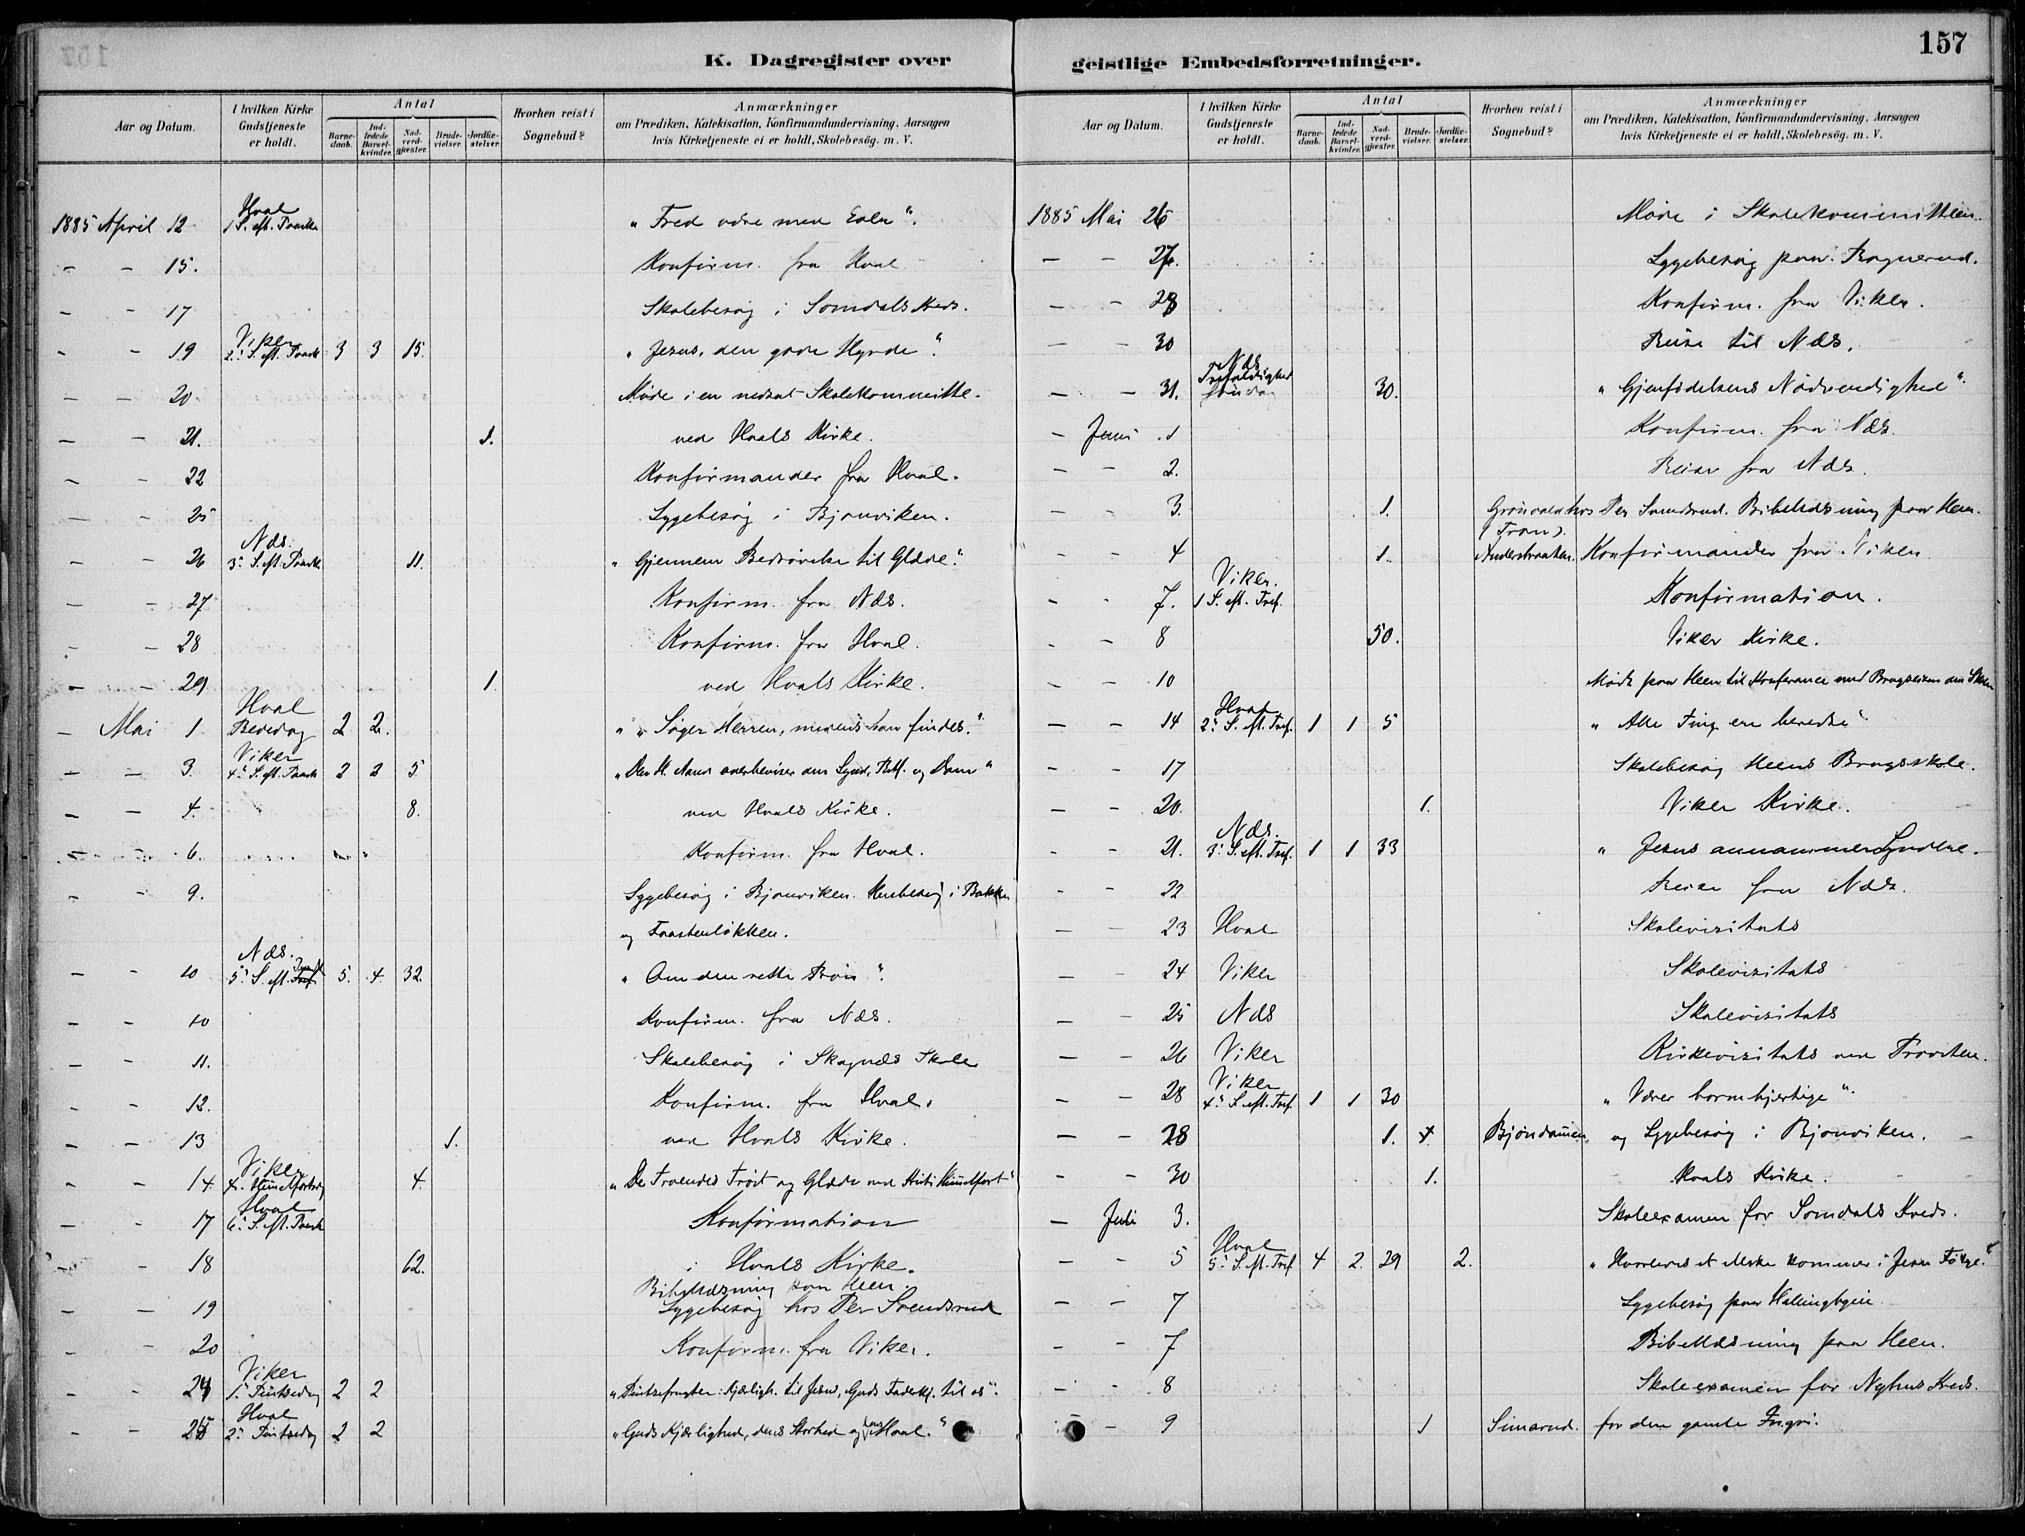 157
K. Dagregister over
geistlige Embedsforretninger.
Aar og Datum.
I hvilken Kirke Gudstjeneste er holdt.
Antal
Barnedaab.
Indledede Barselkvinder.
Nadverdgjæster.
Brudevielser.
Jordfæstelser.
Hvorhen reist i Sognebud?
Anmærkninger
om Prædiken, Katekisation, Konfirmandundervisning, Aarsagen
hvis Kirketjeneste ei er holdt, Skolebesøg. m. V.
1885 April 12 Hval 1 S. eft. Paaske "Fred være med Eder".
— — 15. Konfirm. fra Hval
— — 17 Skolebesøg i Somdals Kreds.
— — 19 Viker 2. S. eft. Paaske 3 3 15. "Jesus, den gode Hyrde".
— — 20. Møde i en nedsat Skolekommitte.
— — 21. 1. ved Hvals Kirke.
— — 22 Konfirmander fra Hval.
— — 25 Sygebesøg i Bjonviken.
— — 26 Næs. 3. S. eft. Paaske 11. "Gjennem Bedrøvelse til Glæde."
— — 27 Konfirm. fra Næs.
— — 28 Konfirm. fra Hval.
— — 29 1 ved Hvals Kirke.
— Mai 1 Hval Bededag 2 2. "Søger Herren, medens han findes."
— — 3. Viker 4. S. eft. Paaske 2 2 5. "Den H. Aand overbeviser om Synd, Retf. og Dom"
— — 4. 8. ved Hvals Kirke.
— — 6. Konfirm. fra Hval.
— — 9. Sygebesøg i Bjonviken. Husbesøg i Bakken
og Faastenløkken.
— — 10 Næs. 5. S. eft. Paaske 5. 4. 32. "Om den rette Bøn".
— — 10 Konfirm. fra Næs.
— — 11. Skolebesøg i Skagnæs Skole
— — 12. Konfirm. fra Hval.
— — 13 1. ved Hvals Kirke.
— — 14. Viker Kr. Himmelfartsdag 4. "De Troendes Trøst og Glæde ved Kristi Himmelfart"
— — 17 Hval 6. S. eft. Paaske Konfirmation
— — 18 62. i Hvals Kirke.
Bibellæsning paa Heen.
— — 19 Sygebesøg hos Per Svendsrud
— — 20 Konfirm. fra Viker.
— — 24 Viker 1. Pintsedag 2 2 "Pintsefrugter: Kjærligh. til Jesus, Guds Faderkj. til os".
— — 25 Hval 2. Pintsedag 2 2 "Guds Kjærlighed, dens Storhed og dens Maal."
Aar og Datum.
I hvilken Kirke Gudstjeneste er holdt.
Antal
Barnedaab.
Indledede Barselkvinder.
Nadverdgjæster.
Brudevielser.
Jordfæstelser.
Hvorhen reist i Sognebud?
Anmærkninger
om Prædiken, Katekisation, Konfirmandundervisning, Aarsagen
hvis Kirketjeneste ei er holdt, Skolebesøg. m. V.
1885 Mai 26 Møde i Skolekommitteen.
— — 27. Sygebesøg paa Bagnerud.
— — 28 Konfirm. fra Viker.
— — 30 Reise til Næs.
— — 31. Næs Trefoldighed søndag 30. "Gjenfødelsens Nødvendighed".
— Juni 1 Konfirm. fra Næs.
— — 2. Reise fra Næs.
— — 3. 1. Grønvold hos Per Svendsrud. Bibellæsning paa Heen.
(Tron).
— — 4 1. Konfirmander fra Viker
— — 7. Viker. 1 S. eft. Tref. Konfirmation.
— — 8 50. Viker Kirke.
— — 10 Møde paa Heen til Konferance med Brugseieren om Skolen
— — 14 Hval 2. S. eft. Tref. 1 1 5 "Alle Ting ere beredte"
— — 17 Skolebesøg Heens Brugsskole.
— — 20. 1. Viker Kirke.
— — 21. Næs. 3. S. eft. Tref. 1 1 33 "Jesus annammer Syndere.
— — 22 Reise fra Næs.
— — 23 Hval Skolevisitats
— — 24 Viker Skolevisitats
— — 25 Næs Skolevisitats
— — 26 Viker Kirkevisitats ved Provsten.
— — 28 Viker 4. S. eft. Tref. 1 1 30 "Værer barmhjertige".
— — 28 1. Bjøndalen og Sygebesøg i Bjonviken.
— — 30 1. Hvals Kirke.
— Juli 3. Skoleexamen for Somdals Kreds.
— — 5 Hval 5. S. eft. Tref. 4 2. 29 2. "Hvorledes et Mske kommer i Jesu Følge."
— — 7 Sygebesøg paa Hallingbyeie
— — 7 Bibellæsning paa Heen.
— — 8 Skoleexamen for Nyhus Kreds.
— — 9 1 Simarud. for den gamle Ingri.